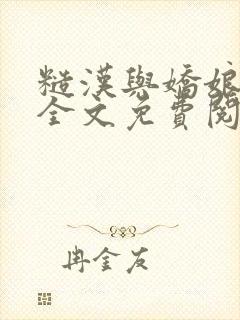 糙漢與嬌娘
全文免費閱
冉金友